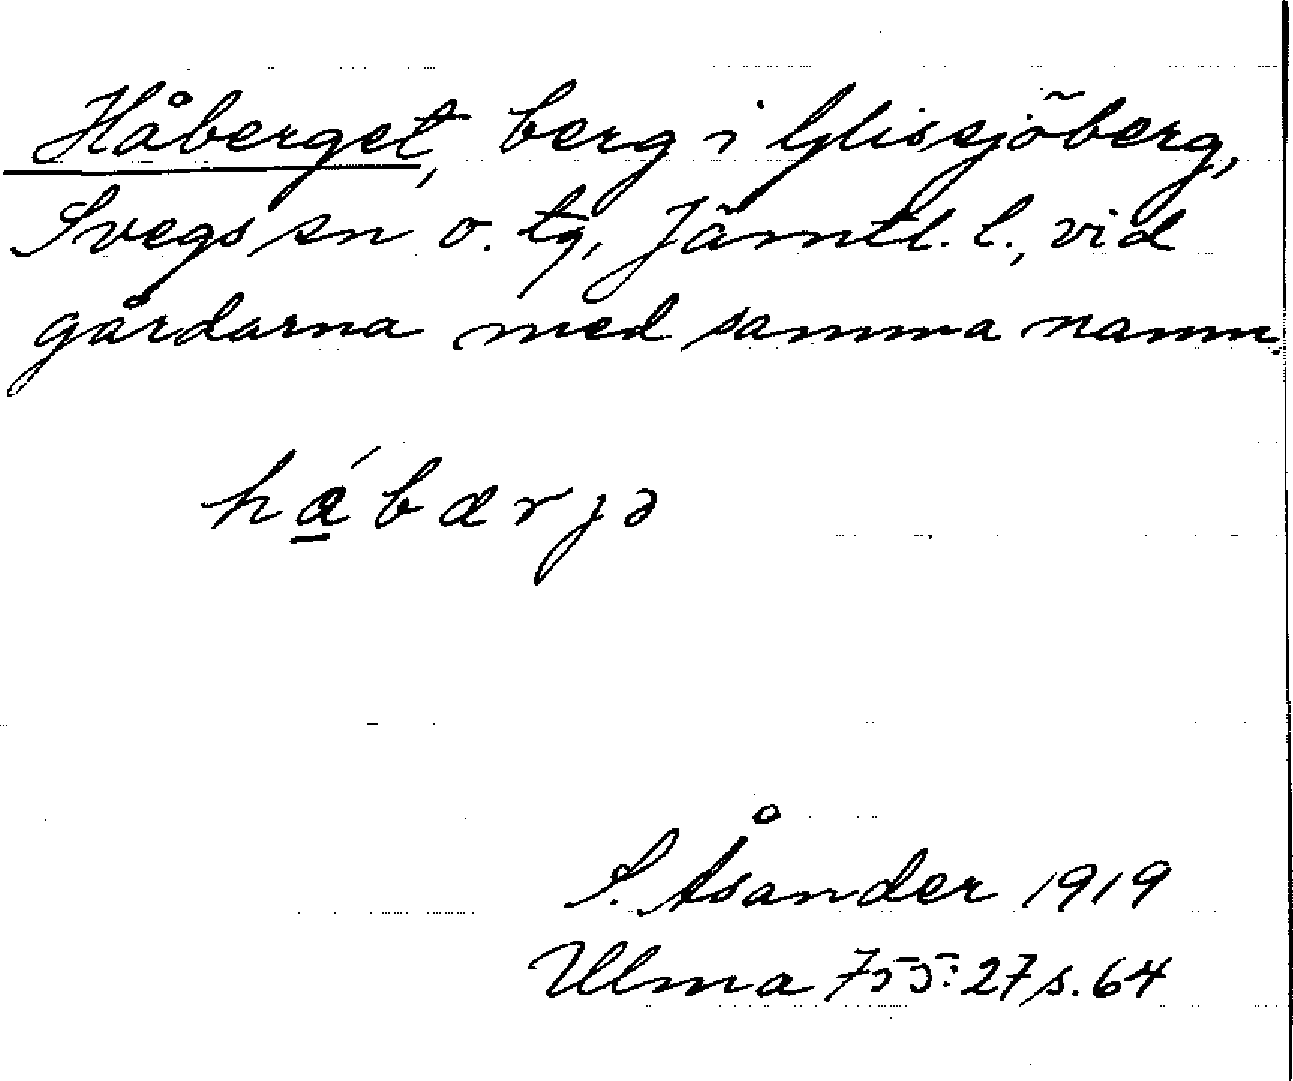 Håberget, berg i Glissjöberg,
Svegs sn o. tg, Jämtl. l., vid
gårdarna med samma namn.
hábærjə
S. Åsander 1919
Ulma 755:27 s. 64